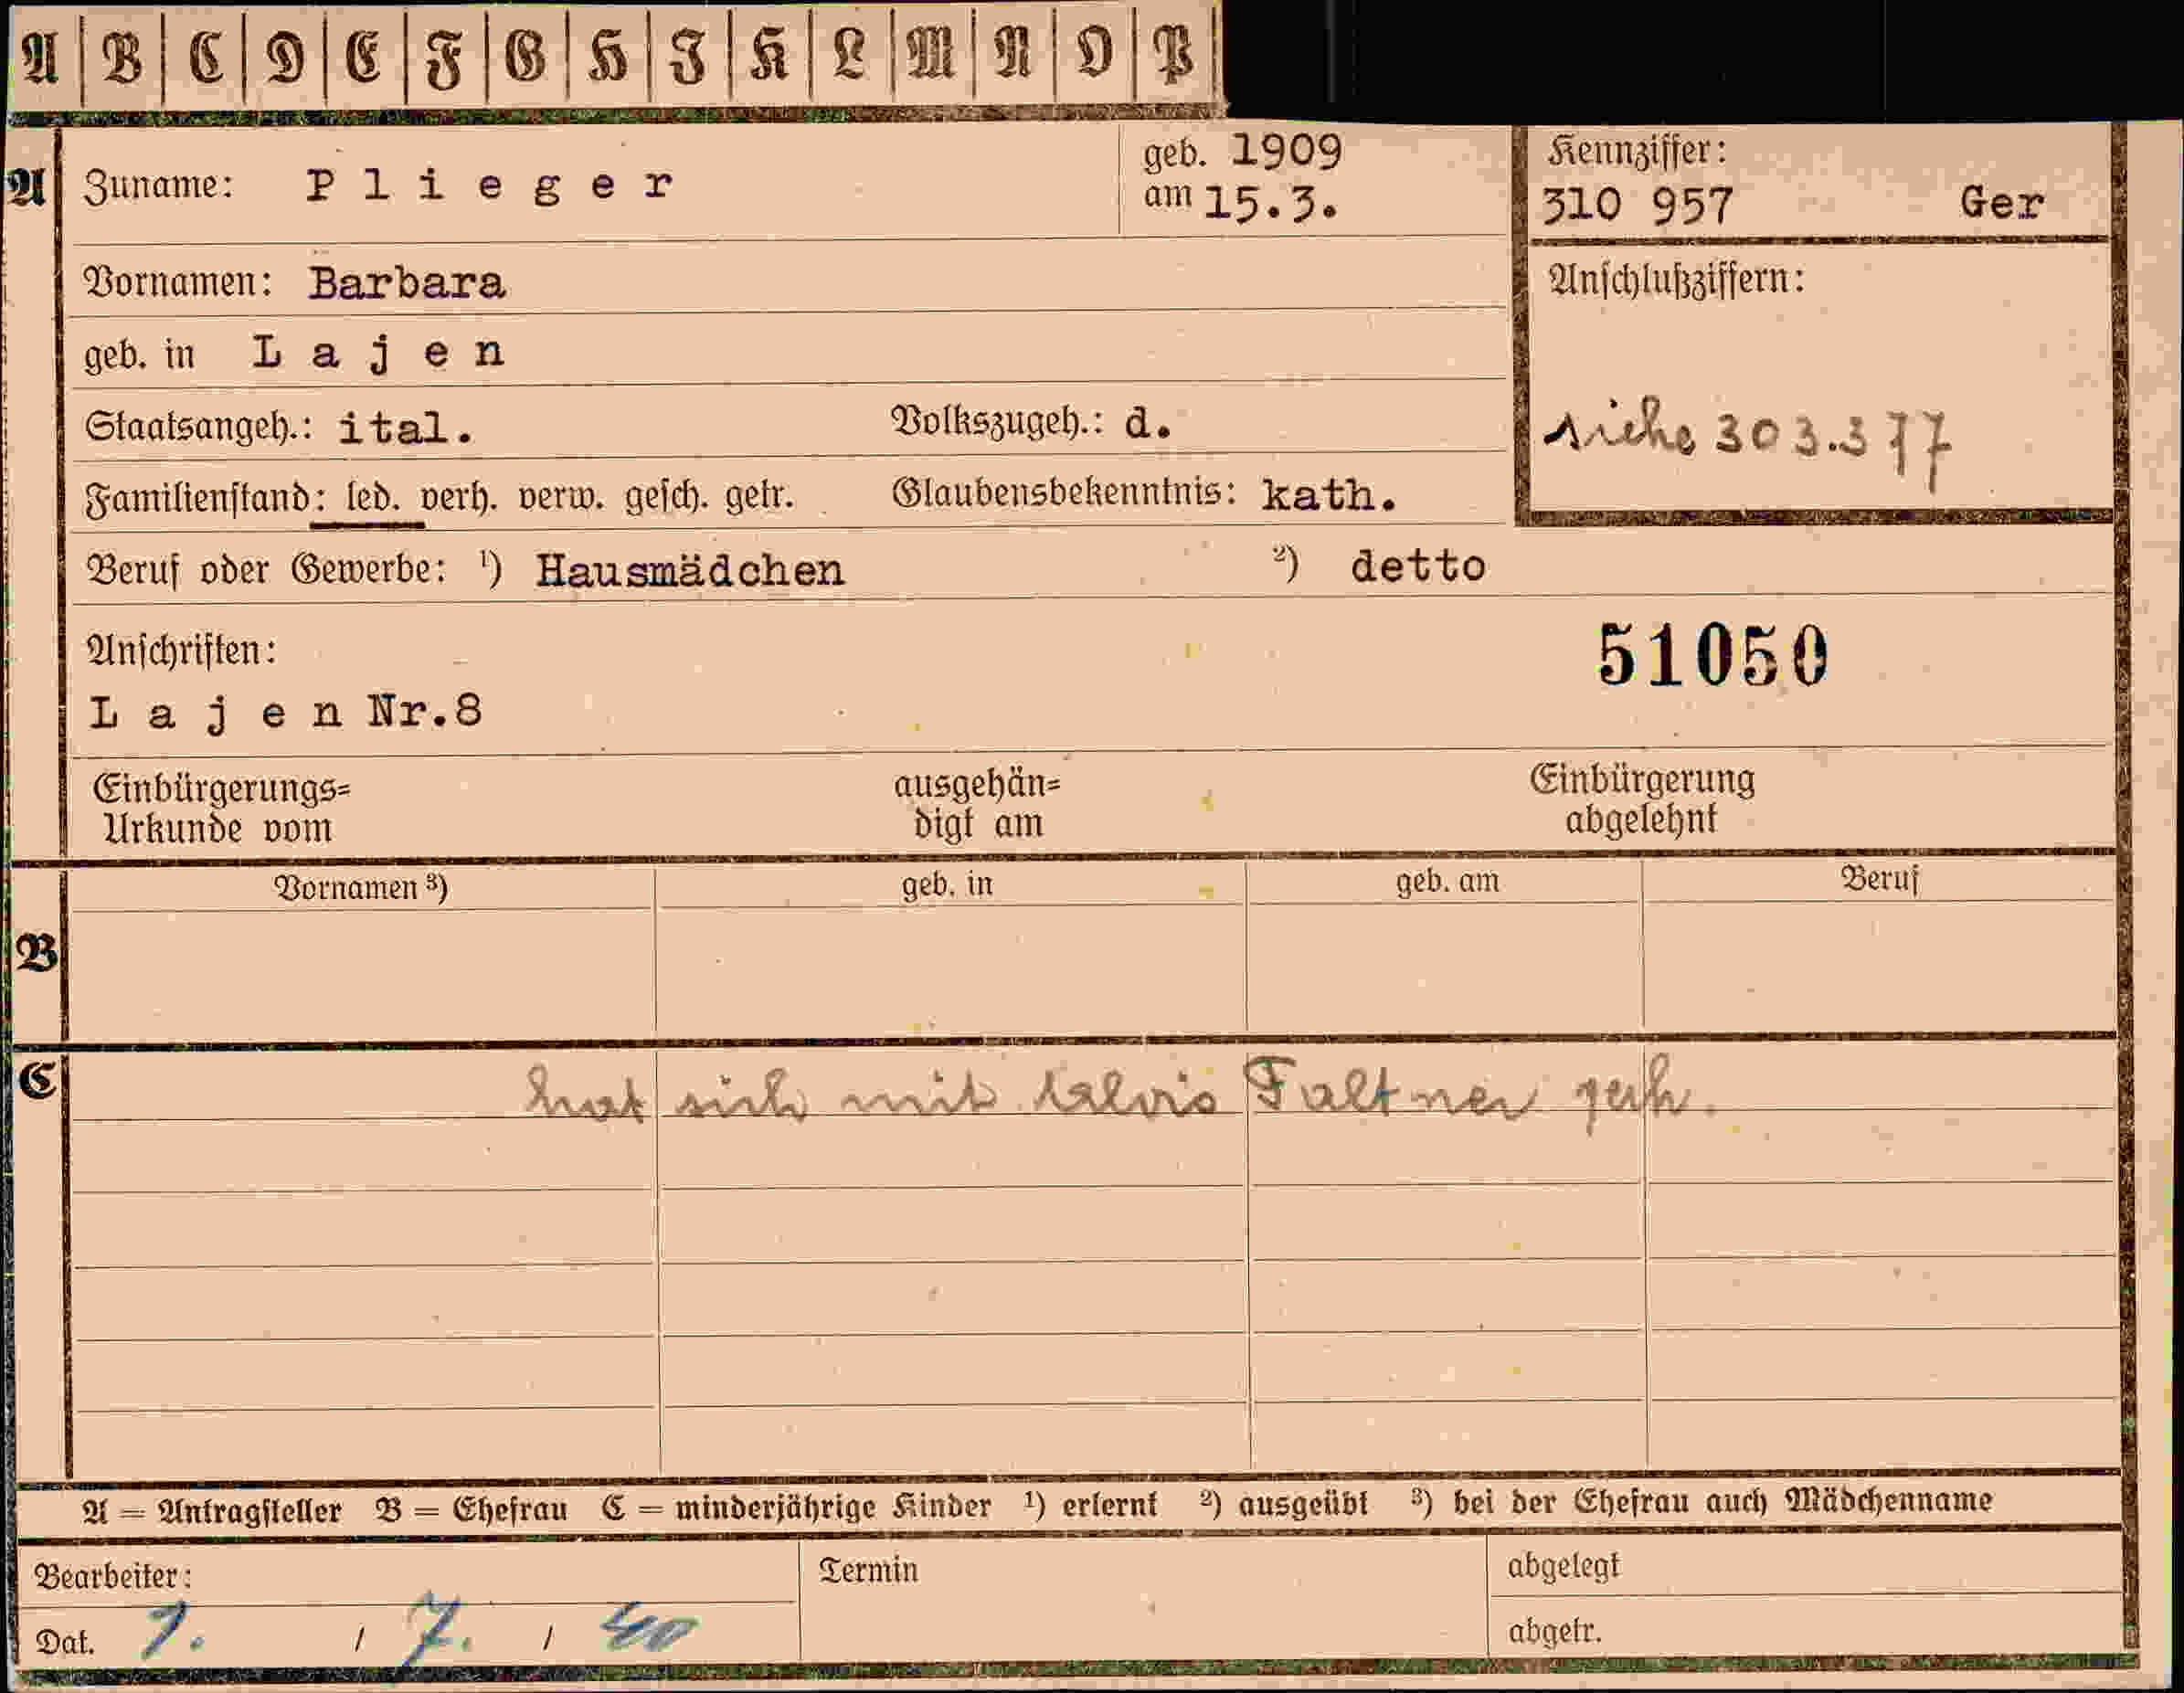 A B C D E F G H I K L M N O P
A Zuname: Plieger geb. 1909 am 15.3.
Kennziffer:
310 957 Ger
Vornamen: Barbara
Anschlußziffern:
geb. in Lajen
Staatsangeh.: ital. Volkszugeh.: d.
siehe 303.377
Familienstand: led. verh. verw. gesch. getr. Glaubensbekenntnis: kath.
Beruf oder Gewerbe: ¹) Hausmädchen ²) detto
Anschriften:
51050
Lajen Nr.8
Einbürgerungs= ausgehän= Einbürgerung
Urkunde vom digt am abgelehnt
Vornamen ³) geb. in geb. am Beruf
B
C hat sich mit Alois Faltner verh.
A = Antragsteller B = Ehefrau C = minderjährige Kinder ¹) erlernt ²) ausgeübt ³) bei der Ehefrau auch Mädchenname
Bearbeiter: Termin abgelegt
Dat. 1. / 7. / 40 abgetr.